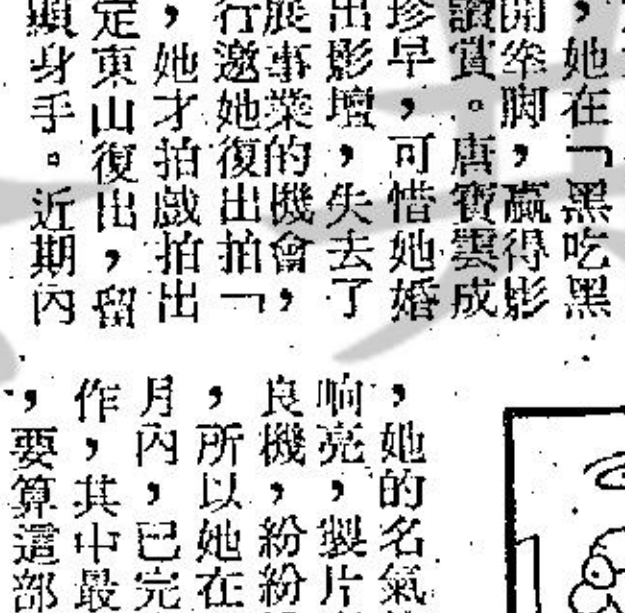 ，她在「黑吃黑
開牟脚，贏得影
讀賞。唐寶雲成
珍早，可惜她婚
出影壇，失去了
展事業的機會，
行邀她復出拍「
，她才拍戲拍出
定東山復出，留
顯身手。近期內
，她的名氣
响亮，製片
良機，紛紛
，所以她在
月內，已完
作，其中最
，要算這部